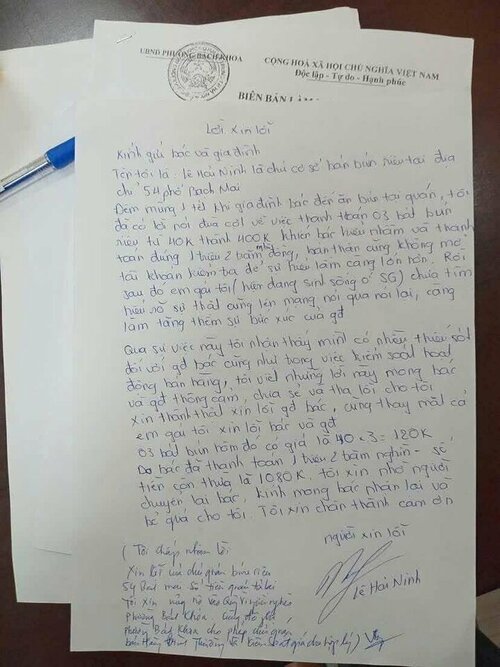 UBND PHƯỜNG BÁCH KHOA
CỘNG HOÀ XÃ HỘI CHỦ NGHĨA VIỆT NAM
Độc lập - Tự do - Hạnh phúc
BIÊN BẢN LÀM
Lời xin lỗi
Kính gửi bác và gia đình
Tên tôi là Lê Hải Ninh là chủ cơ sở bán bún riêu tại địa
chỉ 54 phố Bạch Mai
Đêm mùng 1 tết khi gia đình bác đến ăn bún tại quán, tôi
đã có lời nói đùa cợt về việc thanh toán 03 bát bún
riêu từ 40K thành 400K khiến bác hiểu nhầm và thanh
toán đúng 1 triệu 2 trăm đồng, bản thân cũng không mở
tài khoản kiểm tra để sự hiểu lầm càng lớn hơn. Rồi
sau đó em gái tôi (hiện đang sinh sống ở SG) chưa tìm
hiểu rõ sự thật cũng lên mạng nói qua nói lại, càng
làm tăng thêm sự bức xúc của gđ
Qua sự việc này tôi nhận thấy mình có nhiều thiếu sót
đối với gđ bác cũng như trong việc kiểm soát hoạt
động bán hàng, tôi viết những lời này mong bác
và gđ thông cảm, chia sẻ và tha lỗi cho tôi
Xin thành thật xin lỗi gđ bác, cũng thay mặt cả
em gái tôi xin lỗi bác và gđ
03 bát bún hôm đó có giá là 40 x 3 = 120K
Do bác đã thanh toán 1 triệu 2 trăm nghìn - số
tiền còn thừa là 1080K tôi xin nhờ người
chuyển lại bác, kính mong bác nhận lại và
bỏ qua cho tôi. Tôi xin chân thành cảm ơn
người xin lỗi
Lê Hải Ninh
( Tôi chấp nhận lời
Xin lỗi của chủ quán bún riêu
54 Bạch mai số tiền quán trả lại
Tôi xin ủng hộ vào Quỹ Vì người nghèo
Phường Bách Khoa.
phường Bách Khoa cho phép chủ quán
bán hàng bình thường và kiểm soát giá cho hợp lý )